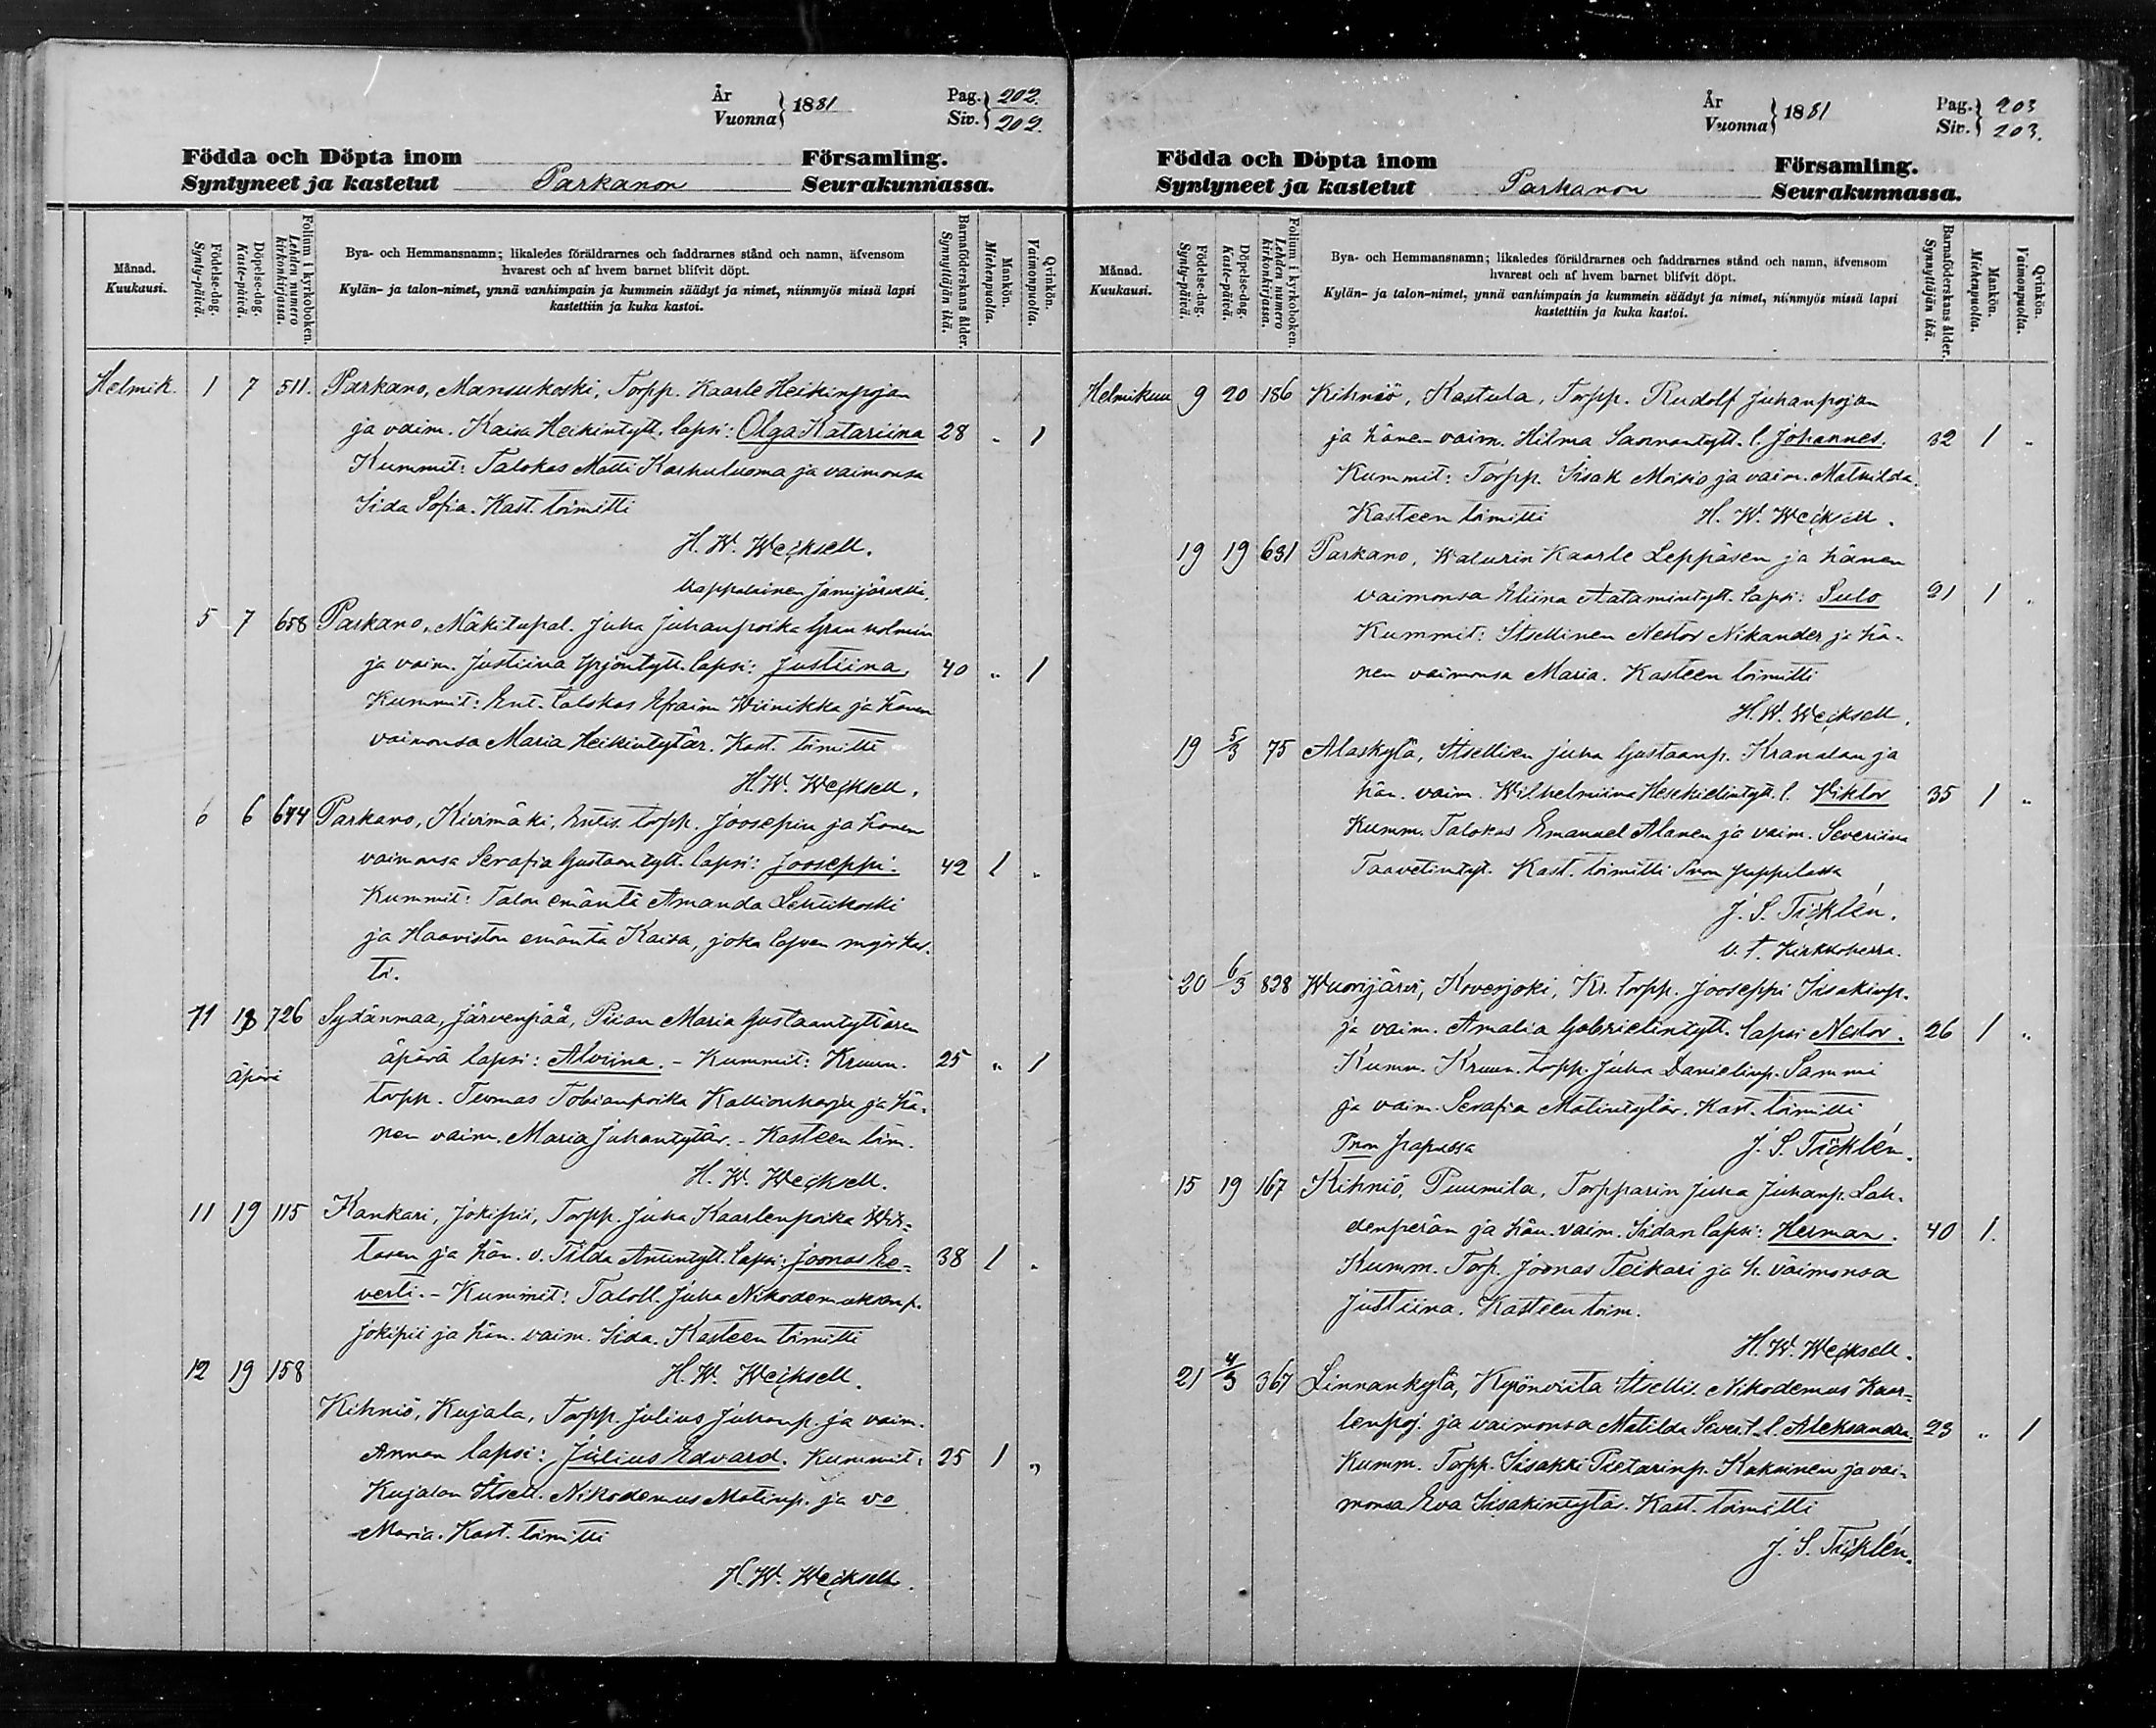 År
Vuonna } 1881
Pag. } 202.
Siv. } 202.
Födda och Döpta inom Församling.
Syntyneet ja kastetut Parkanon Seurakunnassa.
Månad.
Kuukausi.
Födelse-dag.
Synty-päivä.
Döpelse-dag.
Kaste-päivä.
Folium i kyrkoboken.
Lehden numero
kirkonkirjassa.
Bya- och Hemmansnamn; likaledes föräldrarnes och faddrarnes stånd och namn, äfvensom
hvarest och af hvem barnet blifvit döpt.
Kylän- ja talon-nimet, ynnä vanhimpain ja kummein säädyt ja nimet, niinmyös missä lapsi
kastettiin ja kuka kastoi.
Barnaföderskans ålder.
Synnyttäjän ikä.
Mankön.
Miehenpuolia.
Qvinkön.
Vaimonpuolia.
Helmik. 1 7 511. Parkano, Mansukoski, Torpp. Kaarle Heikinpojan
ja vaim. Kaisa Heikintytt. lapsi: Olga Katariina 28 " 1
Kummit: Talokas Matti Karhuluoma ja vaimonsa
Iida Sofia. Kast. toimitti
H. W. Weçksell.
kappalainen Jämijärvellä.
5 7 658 Parkano, Mäkitupal. Juha Juhanpoika
ja vaim. Justiina Yrjöntytt. lapsi: Justiina 40 " 1
Kummit: Ent. talokas Efraim Wiinikka ja hänen
vaimonsa Maria Heikintytär. Kast. toimitti
H. W. Weçksell.
6 6 644 Parkano, Kivimäki, Entis. torpp. Joosepin ja hänen
vaimonsa Serafia Gustaantytt. lapsi: Jooseppi. 42 1 "
Kummit: Talon emäntä Amanda Lehtikoski
ja Haaviston emäntä Kaisa, joka lapsen myös kas-
toi.
11 18 726 Sydänmaa, Järvenpää, Piian Maria Gustaantyttären
äpärä äpärä lapsi: Alviina. - Kummit: Kruun. 25 " 1
torpp. Tuomas Tobianpoika Kallionharju ja hä-
nen vaim. Maria Juhantytär. - Kasteen toim.
H. W. Weçksell.
11 19 115 Kankari, Jokipii, Torpp. Juha Kaarlenpoika Wir-
tasen ja hän. v. Tilda Antintytt. lapsi: Joonas Ee- 38 1 "
verti. - Kummit: Taloll. Juha Nikodemuksenp.
Jokipii ja hän. vaim. Iida. Kasteen toimitti
12 19 158 H. W. Weçksell.
Kihniö, Kujala, Torpp. Julius Juhanp. ja vaim.
Annan lapsi: Julius Edvard. Kummit: 25 1 "
Kujalan Itsell. Nikodemus Matinp. ja vo
Maria. Kast. toimitti
H. W. Weçksell.
År
Vuonna } 1881
Pag. } 203
Siv. } 203.
Födda och Döpta inom Församling.
Syntyneet ja kastetut Parkanon Seurakunnassa.
Månad.
Kuukausi.
Födelse-dag.
Synty-päivä.
Döpelse-dag.
Kaste-päivä.
Folium i kyrkoboken.
Lehden numero
kirkonkirjassa.
Bya- och Hemmansnamn; likaledes föräldrarnes och faddrarnes stånd och namn, äfvensom
hvarest och af hvem barnet blifvit döpt.
Kylän- ja talon-nimet, ynnä vanhimpain ja kummein säädyt ja nimet, niinmyös missä lapsi
kastettiin ja kuka kastoi.
Barnaföderskans ålder.
Synnyttäjän ikä.
Mankön.
Miehenpuolia.
Qvinkön.
Vaimonpuolia.
Helmikuu 9 20 186 Kihniö, Kastula, Torpp. Rudolf Juhanpojan
ja hänen vaim. Hilma Sannantytt. l. Johannes. 32 1 "
Kummit: Torpp. Iisak Moisio ja vaim. Mathilda.
Kasteen toimitti H. W. Weçksell.
19 19 631 Parkano, Walurin Kaarle Leppäsen ja hänen
vaimonsa Eliina Aatamintytt. lapsi: Sulo 21 1 "
Kummit: Itsellinen Nestor Nikander ja hä-
nen vaimonsa Maria. Kasteen toimitti
H. W. Weçksell.
19 5/3 75 Alaskylä, Itsellisen Juha Gustaanp. Kranalan ja
hän. vaim. Wilhelmiina Heschielintytt. l. Viktor 35 1 "
Kumm. Talokas Emanuel Alanen ja vaim. Severiina
Taavetintyt. Kast. toimitti
J. S. Tiçklén.
v. t. Kirkkoherra.
20 6/3 828 Wuorijärvi, Koverjoki, Kr. torpp. Jooseppi Iisakinp.
ja vaim. Amalia Gabrielintytt. lapsi Nestor. 26 1 "
Kumm. Kruun. torpp. Juha Danielinp. Sammi
ja vaim. Serafia Matintytär. Kast. toimitti
J. S. Tiçklén.
15 19 167 Kihniö, Puumila, Torpparin Juha Juhanp. Lah-
denperän ja hän. vaim. Iidan lapsi: Herman. 40 1.
Kumm. Torp. Joonas Teikari ja h. vaimonsa
Justiina. Kasteen toim.
H. W. Weçksell.
21 4/3 367 Linnankylä, Kyrönviita Itsellis. Nikodemus Kaar-
lenpoj. ja vaimonsa Matilda Sever. t. l. Aleksandra. 23 " 1
Kumm. Torpp. Iisakki Pietarinp. Kakninen ja vai-
monsa Eva Iisakintytär. Kast. toimitti
J. S. Tiçklén.